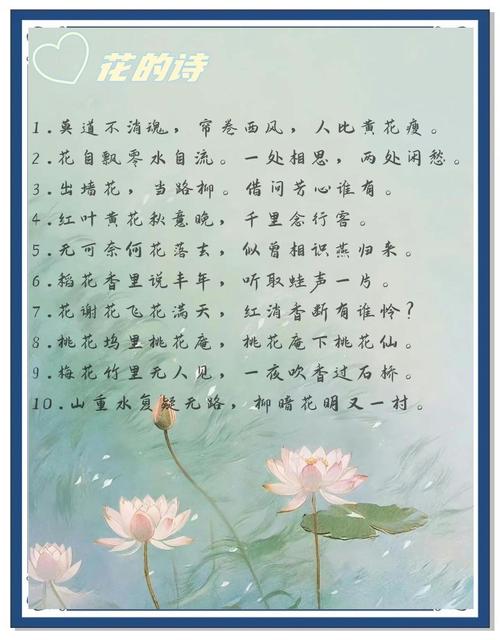 花的诗
1.莫道不消魂，帘卷西风，人比黄花瘦。
2.花自飘零水自流。一处相思，两处闲愁。
3.出墙花，当路柳。借问芳心谁有。
4.红叶黄花秋意晚，千里念行客。
5.无可奈何花落去，似曾相识燕归来。
6.稻花香里说丰年，听取蛙声一片。
7.花谢花飞花满天，红消香断有谁怜？
8.桃花坞里桃花庵，桃花庵下桃花仙。
9.梅花竹里无人见，一夜吹香过石桥。
10.山重水复疑无路，柳暗花明又一村。